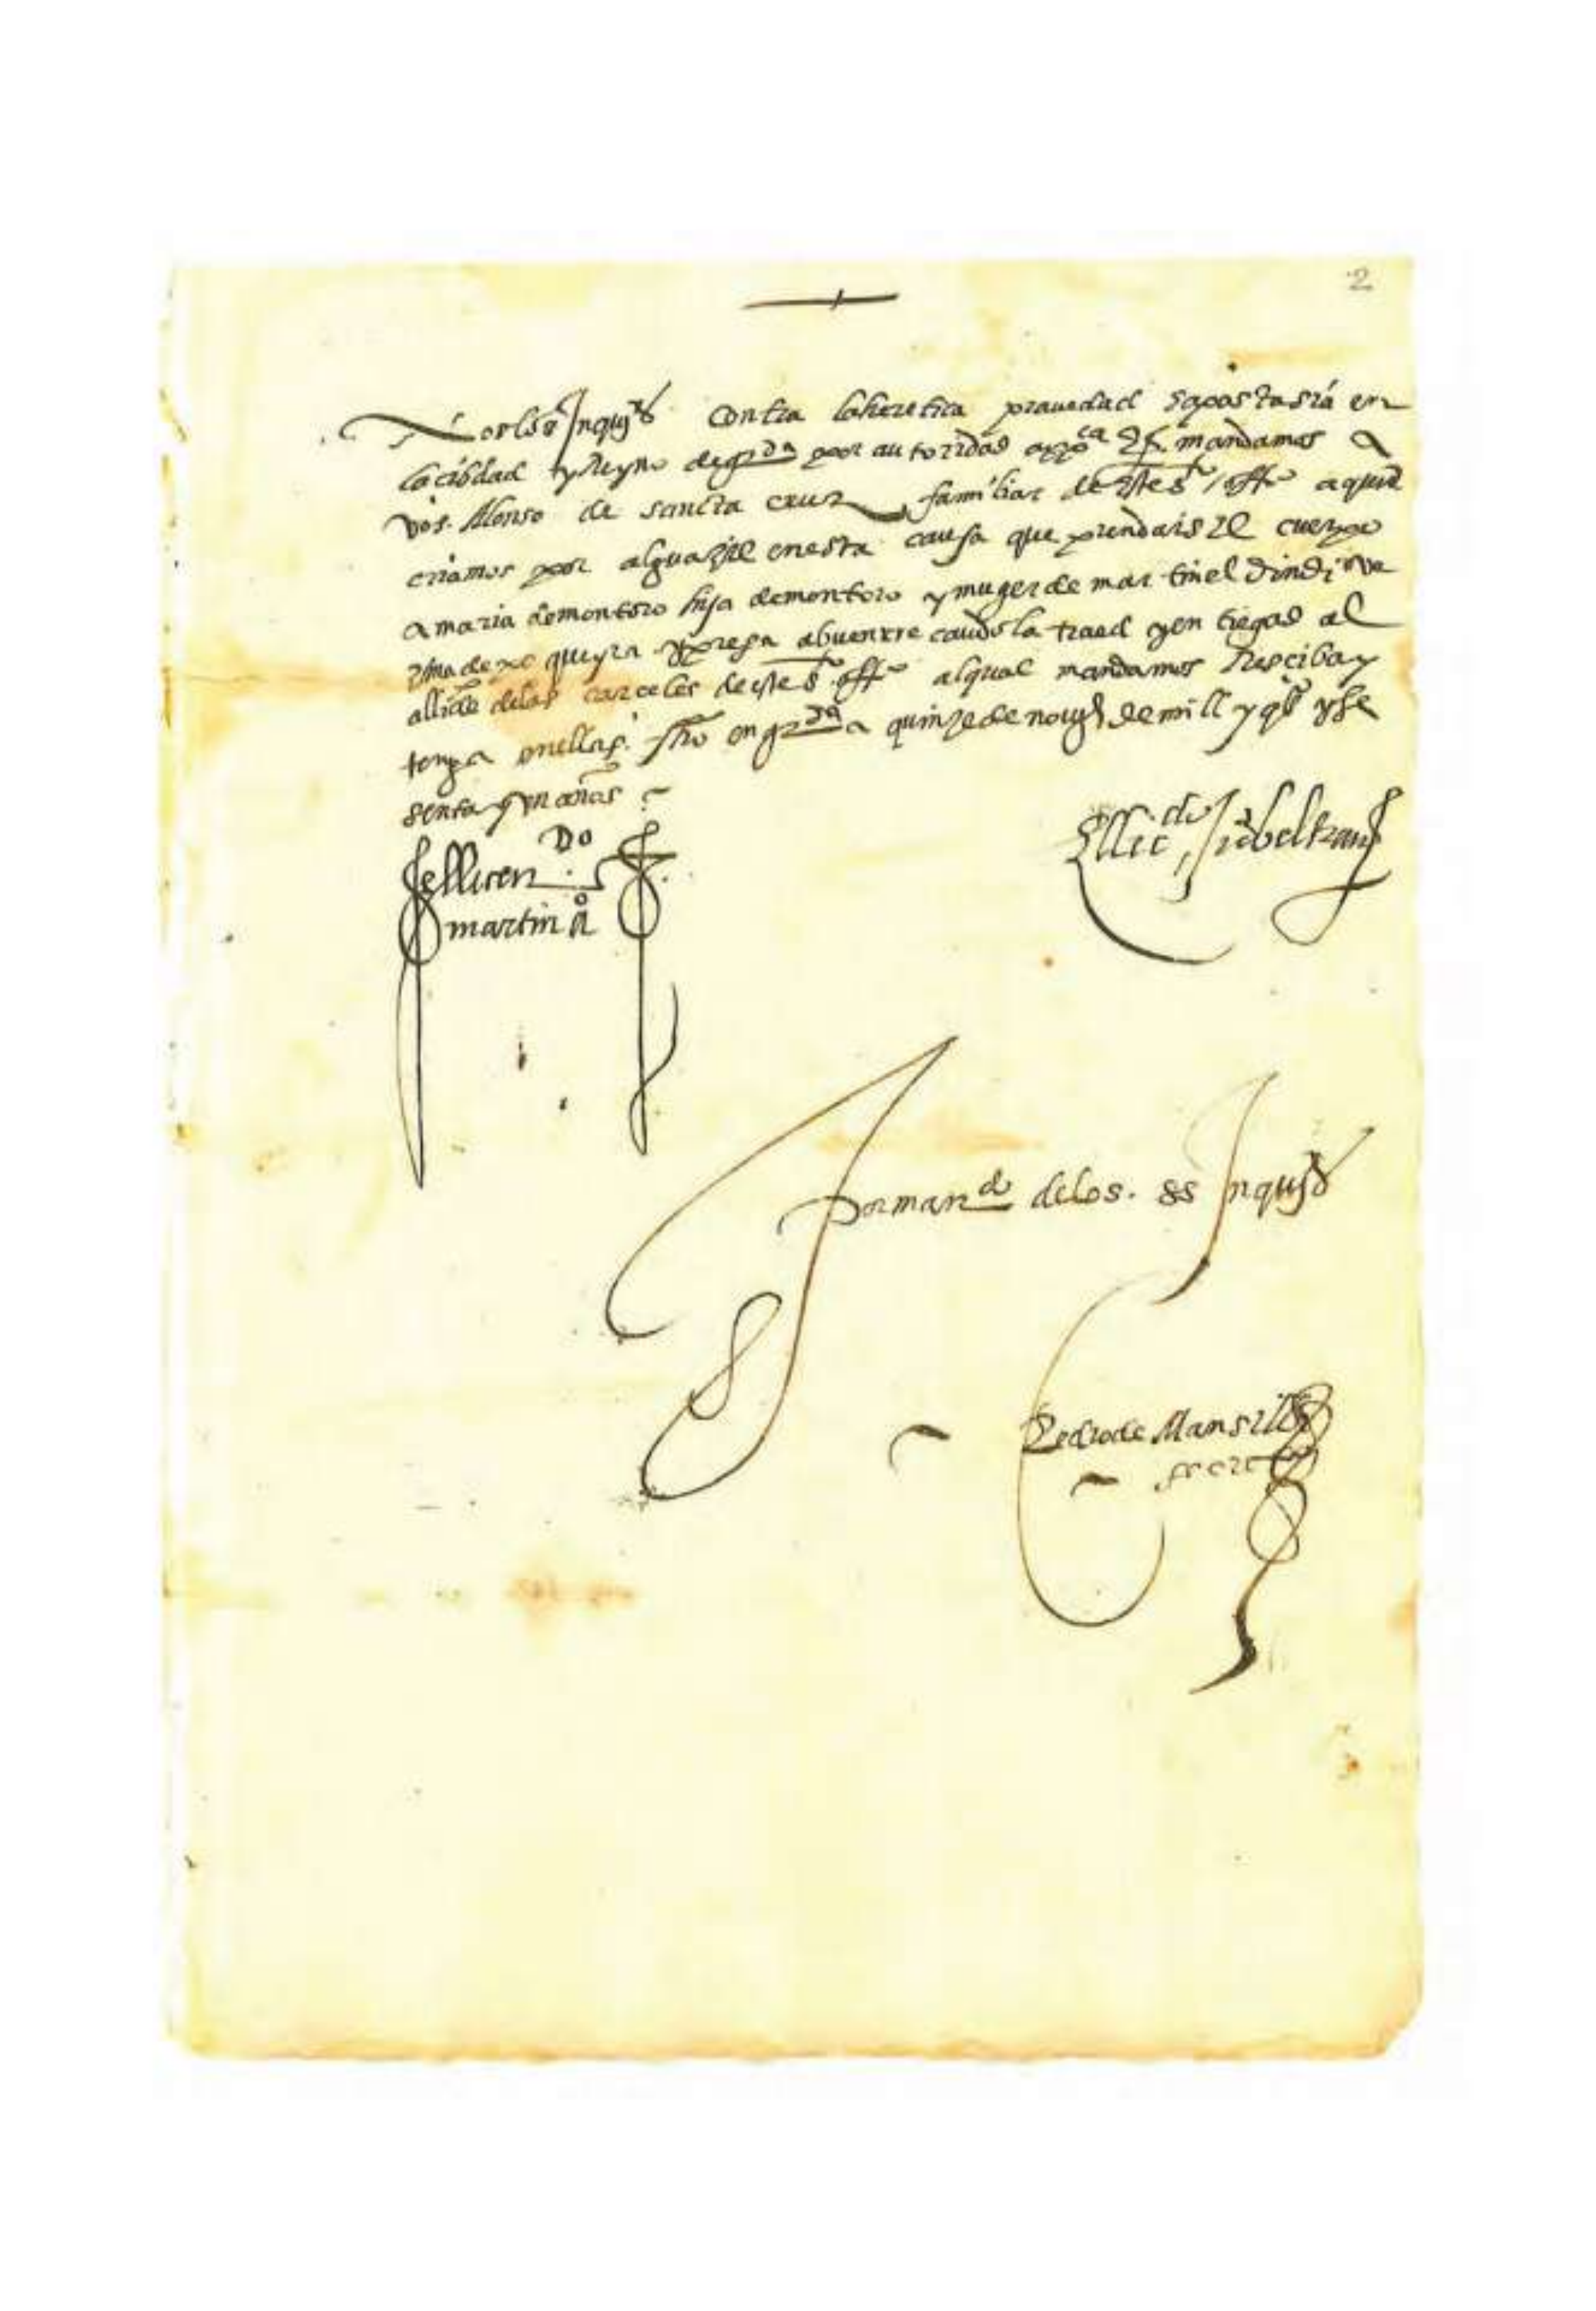 2
Nos los Inquis contra la heretica pravedad y apostasia en
la cibdad y Reyno de grda por autoridad appca mandamos a
vos Alonso de sancta cruz familiar deste sto offo a quie
criamos por alguazil en esta causa que prendais el cuerpo
a maria de montoro hija de montoro y muger de martin el ve
zina de que y presa a buen recaudo la traed y entregad al
allcde delas carceles deste sto offo al qual mandamos Resciba y
tenga en ellas. fho en grda a quinze de de mill y qos y se
senta y un años
El licendo
martin
El licdo beltran
Por mando delos ss Inquis
Pedro de Mansilla
secreto